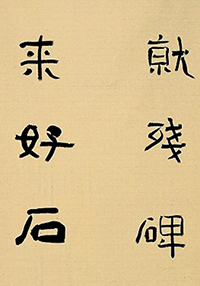 就残碑
来好石